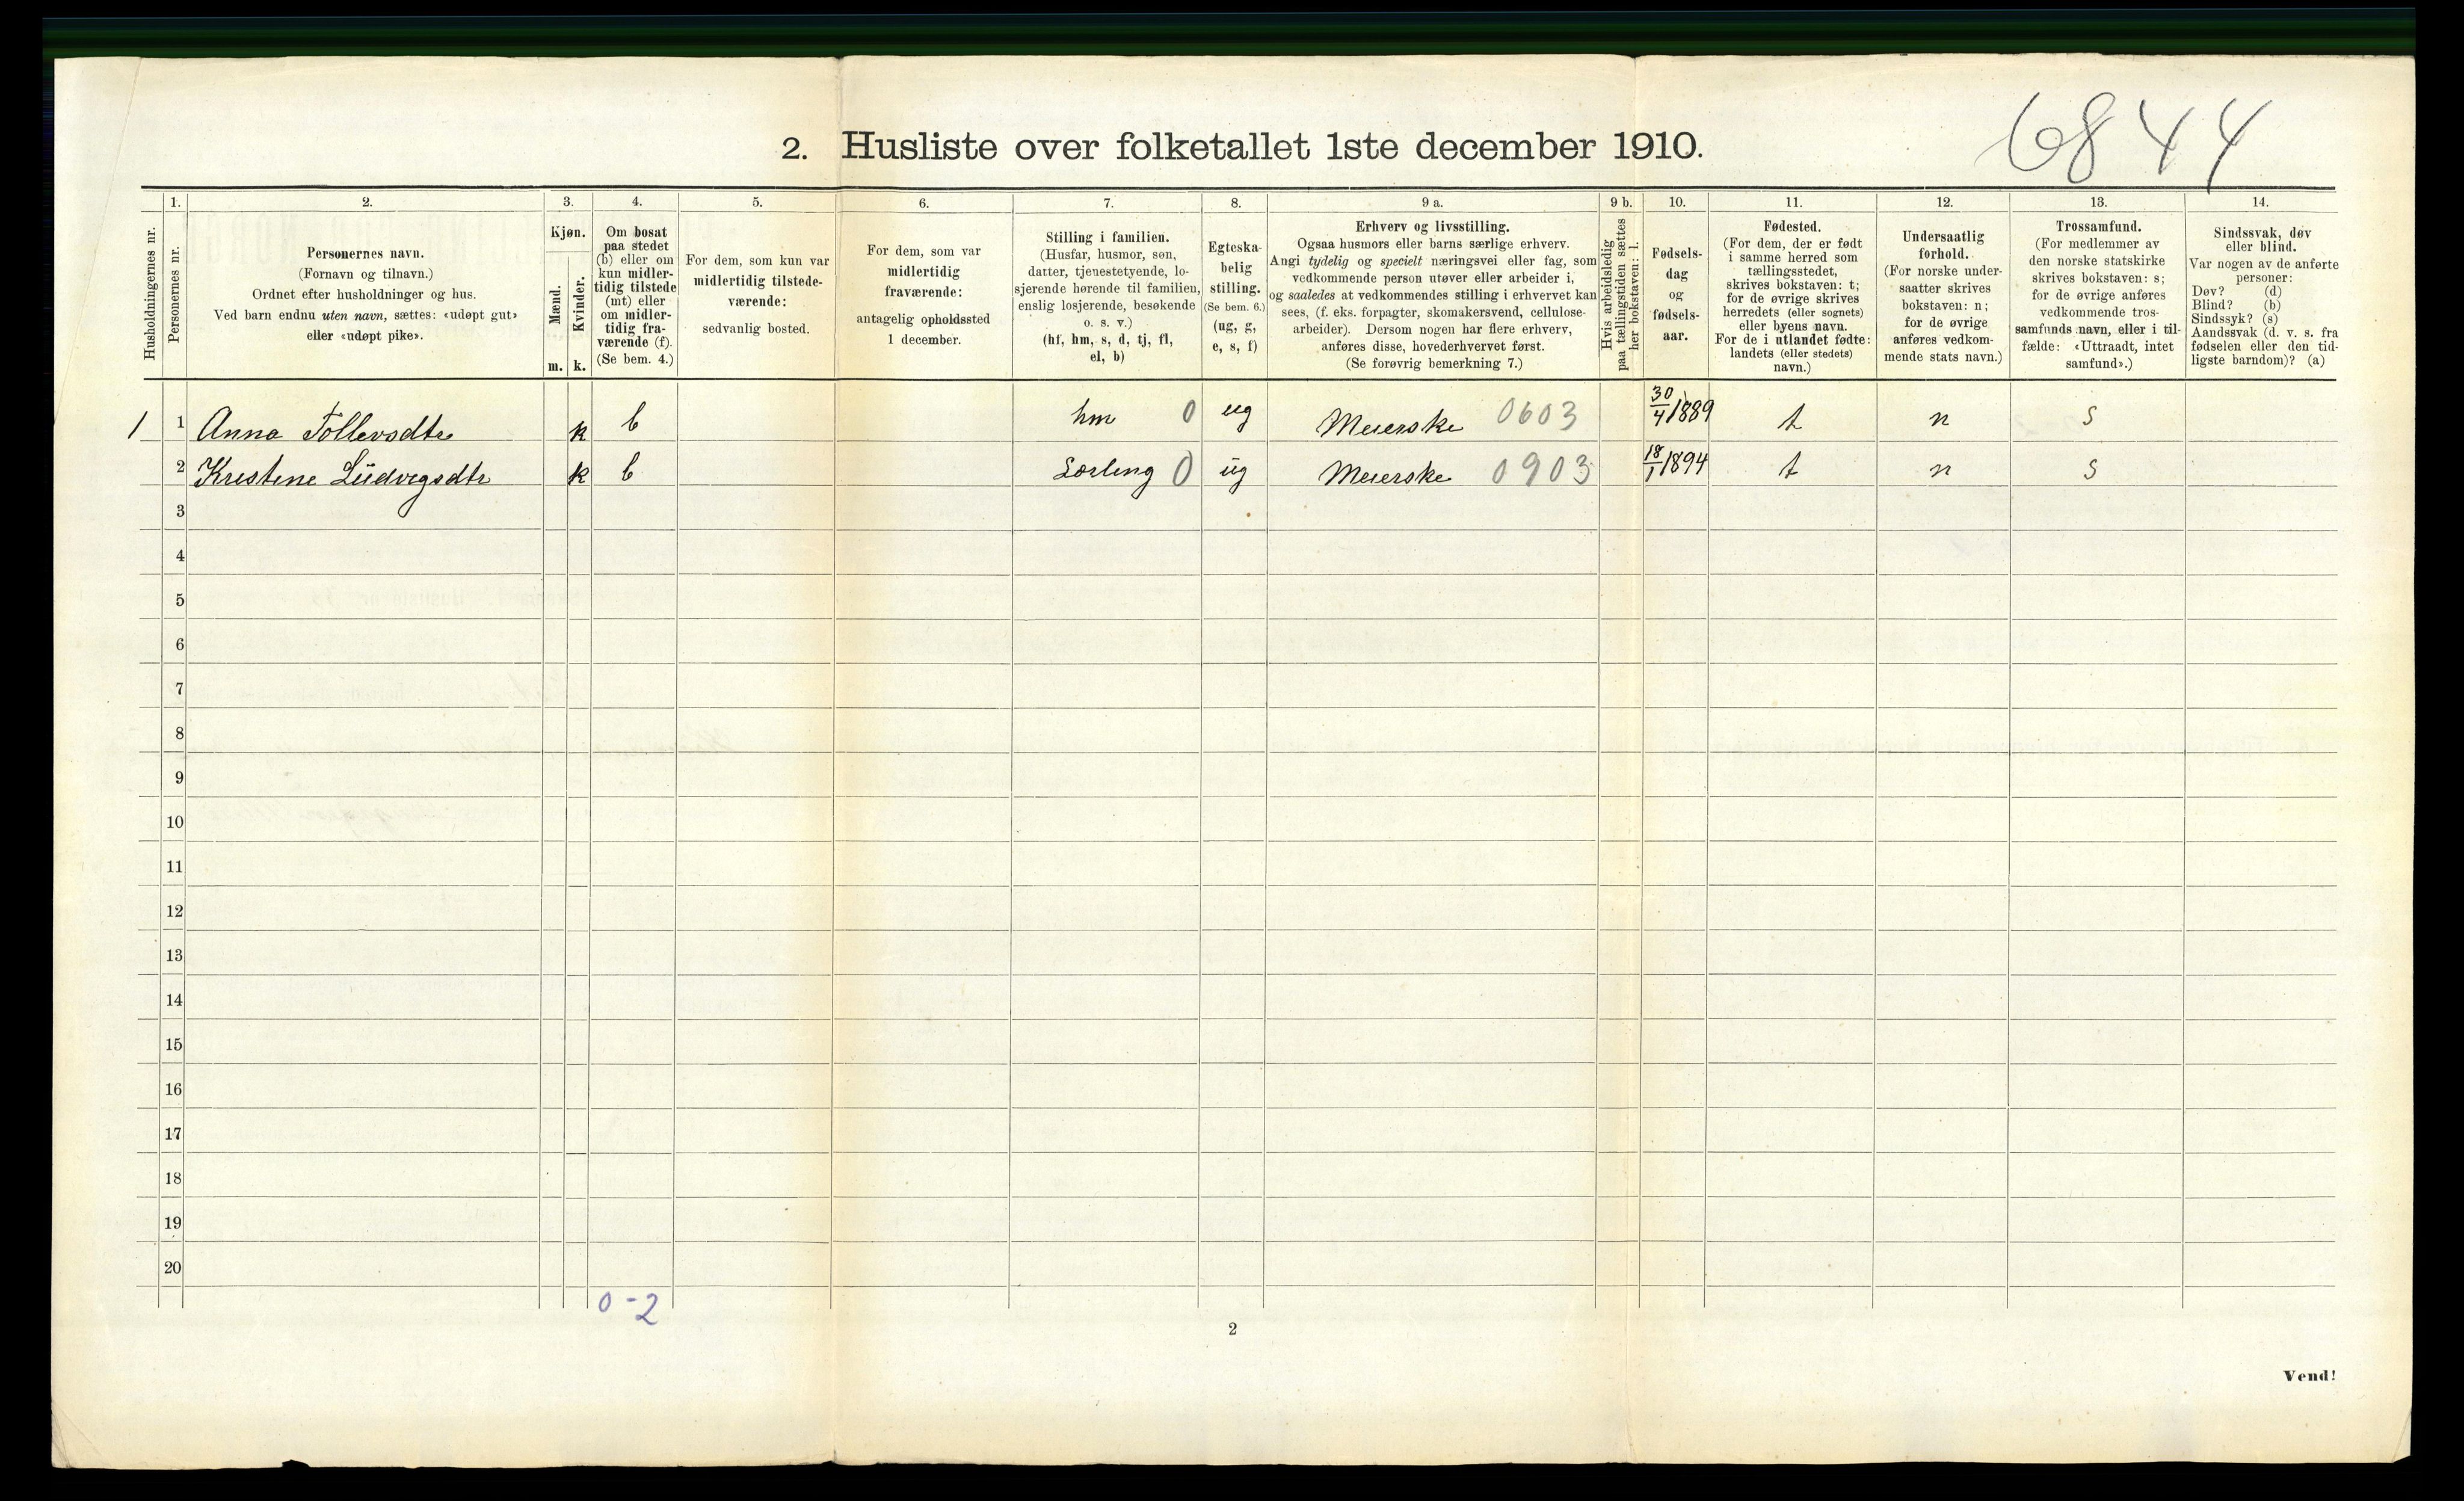 6844
2. Husliste over folketallet 1ste december 1910.
Husholdningernes nr.
1.
Personernes nr.
2.
Personernes navn.
(Fornavn og tilnavn.)
Ordnet efter husholdninger og hus.
Ved barn endnu uten navn, sættes: «udøpt gut»
eller «udøpt pike».
3.
Kjøn.
Mænd.
Kvinder.
m. k.
4.
Om bosat
paa stedet
(b) eller om
kun midler-
tidig tilstede
(mt) eller
om midler-
tidig fra-
værende (f).
(Se bem. 4.)
5.
For dem, som kun var
midlertidig tilstede-
værende:
sedvanlig bosted.
6.
For dem, som var
midlertidig
fraværende:
antagelig opholdssted
1 december.
7.
Stilling i familien.
(Husfar, husmor, søn,
datter, tjenestetyende, lo-
sjerende hørende til familien,
enslig losjerende, besøkende
o. s. v.)
(hf, hm, s, d, tj, fl,
el, b)
8.
Egteska-
belig
stilling.
(Se bem. 6.)
(ug, g,
e, s, f)
9 a.
Erhverv og livsstilling.
Ogsaa husmors eller barns særlige erhverv.
Angi tydelig og specielt næringsvei eller fag, som
vedkommende person utøver eller arbeider i,
og saaledes at vedkommendes stilling i erhvervet kan
sees, (f. eks. forpagter, skomakersvend, cellulose-
arbeider). Dersom nogen har flere erhverv,
anføres disse, hovederhvervet først.
(Se forøvrig bemerkning 7.)
9 b.
Hvis arbeidsledig
paa tællingstiden sættes
her bokstaven: l.
10.
Fødsels-
dag
og
fødsels-
aar.
11.
Fødested.
(For dem, der er født
i samme herred som
tællingsstedet,
skrives bokstaven: t;
for de øvrige skrives
herredets (eller sognets)
eller byens navn.
For de i utlandet fødte:
landets (eller stedets)
navn.)
12.
Undersaatlig
forhold.
(For norske under-
saatter skrives
bokstaven: n;
for de øvrige
anføres vedkom-
mende stats navn.)
13.
Trossamfund.
(For medlemmer av
den norske statskirke
skrives bokstaven: s;
for de øvrige anføres
vedkommende tros-
samfunds navn, eller i til-
fælde: «Uttraadt, intet
samfund».)
14.
Sindssvak, døv
eller blind.
Var nogen av de anførte
personer:
Døv? (d)
Blind? (b)
Sindssyk? (s)
Aandssvak (d. v. s. fra
fødselen eller den tid-
ligste barndom)? (a)
1 1 Anna Tollevsdtr k b hm 0 ug Meierske 0603 30/4 1889 t n s
2 Kristine Ludvigsdtr k b Lærling 0 ug Meierske 0903 18/1 1894 t n s
3
4
5
6
7
8
9
10
11
12
13
14
15
16
17
18
19
20
0-2
2
Vend!